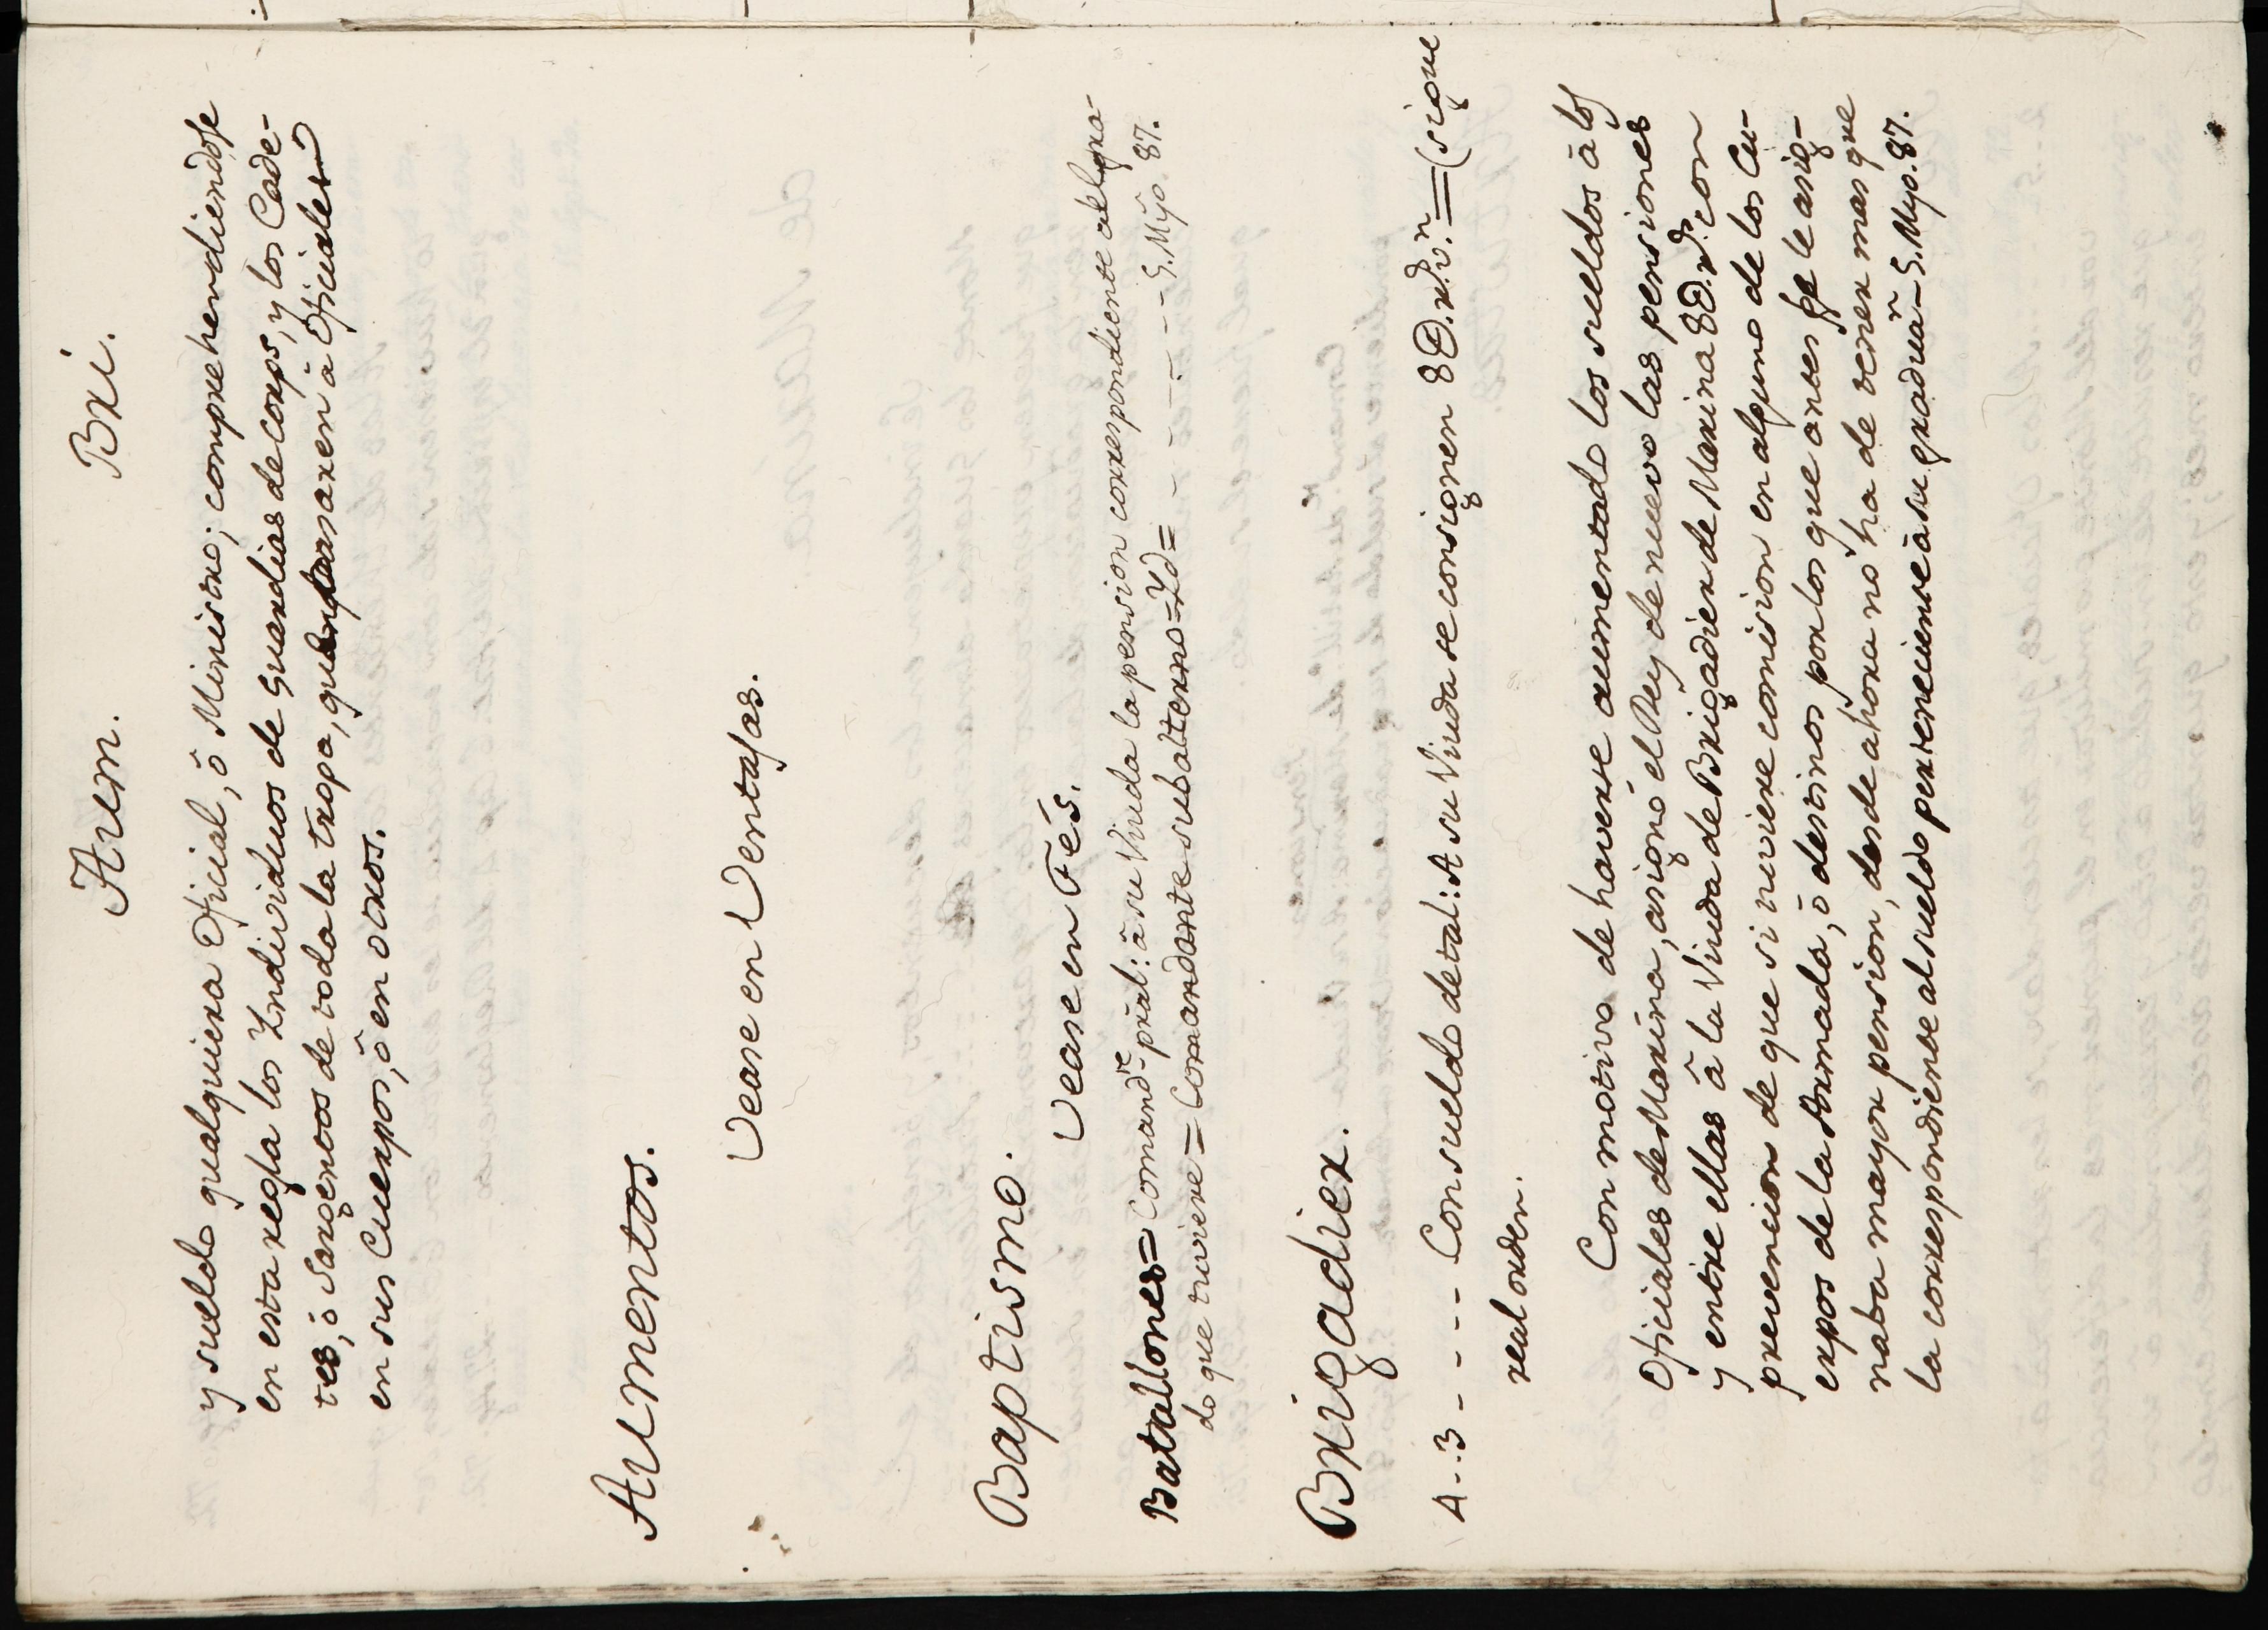 Aum. Bri.
y sueldo qualquiera Oficial, ô Ministro; comprehendiendose
en esta regla los Individuos de Guardias de corps, y los Cade-
tes, ô Sargentos de toda la tropa, que pasaren â Oficiales
en sus Cuerpos, ô en otros.
Aumentos.
Vease en Ventajas.
Baptismo.
Vease en Feés.
Batallones = Comand.te pral: â su Viuda la pension correspondiente al gra-
do que tuviere = Comandante subalterno = Yd = - - - - - - - 9. Mỹo. 87.
Brigadier.
A - - 3 - - - - - Con sueldo de tal: A su Viuda se consignen 8 D. r.s v.n = (sigue
real orden.
Con motivo de haverse aumentado los sueldos â los
Oficiales de Marina, asignó el Rey de nuevo las pensiones
y entre ellas â la Viuda de Brigadier de Marina 8 D. r.s con
prevencion de que si tuviere comision en alguno de los Cu-
erpos de la Armada, ô destinos por los que antes se le asig-
naba mayor pension, desde ahora nó ha de tener mas que
la correspondiente al sueldo perteneciente â su graduan - 9. Myo. 87.